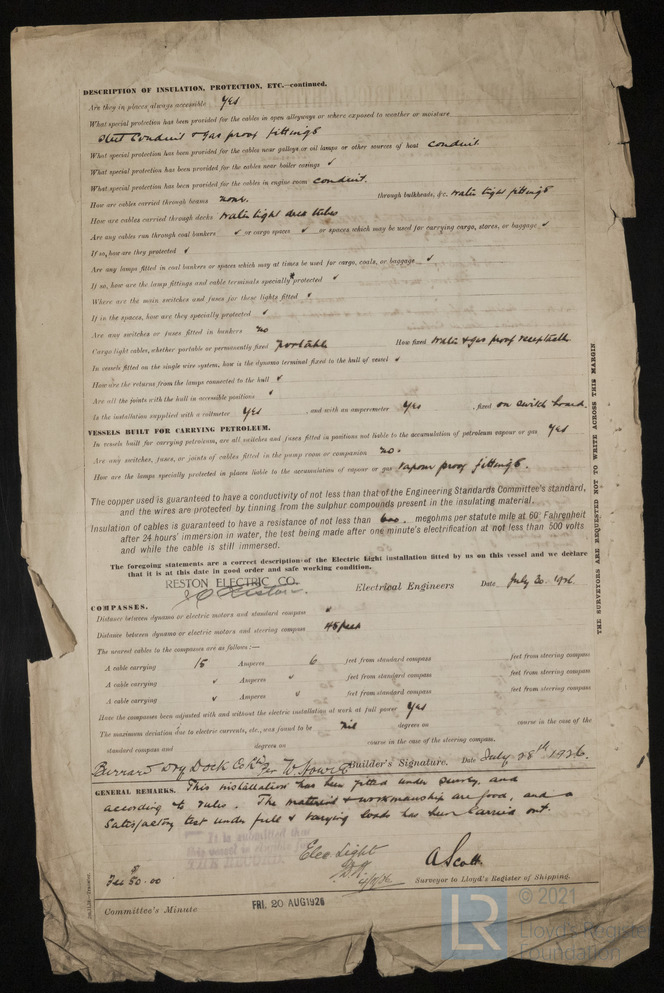 DESCRIPTION OF INSULATION, PROTECTION, ETC.—continued.
Are they in places always accessible Yes
What special protection has been provided for the cables in open alleyways or where exposed to weather or moisture
Steel Conduit & Gas proof fittings
What special protection has been provided for the cables near galleys or oil lamps or other sources of heat conduit.
What special protection has been provided for the cables near boiler casings ✓
What special protection has been provided for the cables in engine room conduit.
How are cables carried through beams none. through bulkheads, &c. water tight fittings
How are cables carried through decks water tight deck tubes
Are any cables run through coal bunkers ✓ or cargo spaces ✓ or spaces which may be used for carrying cargo, stores, or baggage ✓
If so, how are they protected ✓
Are any lamps fitted in coal bunkers or spaces which may at times be used for cargo, coals, or baggage ✓
If so, how are the lamp fittings and cable terminals specially protected ✓
Where are the main switches and fuses for these lights fitted ✓
If in the spaces, how are they specially protected ✓
Are any switches or fuses fitted in bunkers no
Cargo light cables, whether portable or permanently fixed portable How fixed water & gas proof receptacle
In vessels fitted on the single wire system, how is the dynamo terminal fixed to the hull of vessel ✓
How are the returns from the lamps connected to the hull ✓
Are all the joints with the hull in accessible positions ✓
Is the installation supplied with a voltmeter Yes , and with an amperemeter Yes , fixed on switch board.
VESSELS BUILT FOR CARRYING PETROLEUM.
In vessels built for carrying petroleum, are all switches and fuses fitted in positions not liable to the accumulation of petroleum vapour or gas Yes
Are any switches, fuses, or joints of cables fitted in the pump room or companion no.
How are the lamps specially protected in places liable to the accumulation of vapour or gas vapour proof fittings.
The copper used is guaranteed to have a conductivity of not less than that of the Engineering Standards Committee's standard,
and the wires are protected by tinning from the sulphur compounds present in the insulating material.
Insulation of cables is guaranteed to have a resistance of not less than 600 megohms per statute mile at 60° Fahrenheit
after 24 hours' immersion in water, the test being made after one minute's electrification at not less than 500 volts
and while the cable is still immersed.
The foregoing statements are a correct description of the Electric Light installation fitted by us on this vessel and we declare
that it is at this date in good order and safe working condition.
RESTON ELECTRIC CO.
Reston. Electrical Engineers Date July 20. 1926
COMPASSES.
Distance between dynamo or electric motors and standard compass ✓
Distance between dynamo or electric motors and steering compass 45 feet
The nearest cables to the compasses are as follows:—
A cable carrying 15 Amperes 6 feet from standard compass feet from steering compass
A cable carrying ✓ Amperes ✓ feet from standard compass feet from steering compass
A cable carrying ✓ Amperes ✓ feet from standard compass feet from steering compass
Have the compasses been adjusted with and without the electric installation at work at full power Yes
The maximum deviation due to electric currents, etc., was found to be nil degrees on course in the case of the
standard compass and degrees on course in the case of the steering compass.
Burrard Dry Dock Co Ltd Per W. Builder's Signature. Date July 28th 1926.
GENERAL REMARKS. This installation has been fitted under survey, and
according to rules. The material & workmanship are good, and a
Satisfactory test under full & varying loads has been carried out.
It is submitted that
this vessel is eligible for
THE RECORD
Elec Light
Fee $50.00
A Scott
Surveyor to Lloyd's Register of Shipping.
Committee's Minute FRI. 20 AUG 1926
THE SURVEYORS ARE REQUESTED NOT TO WRITE ACROSS THIS MARGIN
LR
© 2021
Lloyd's Register
Foundation